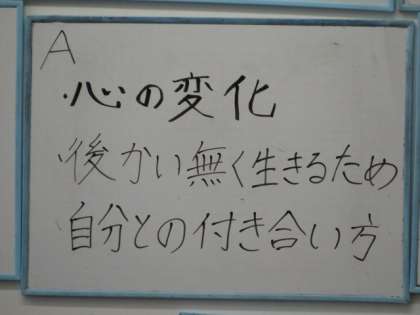 A
・心の変化
後かい無く生きるため
自分との付き合い方